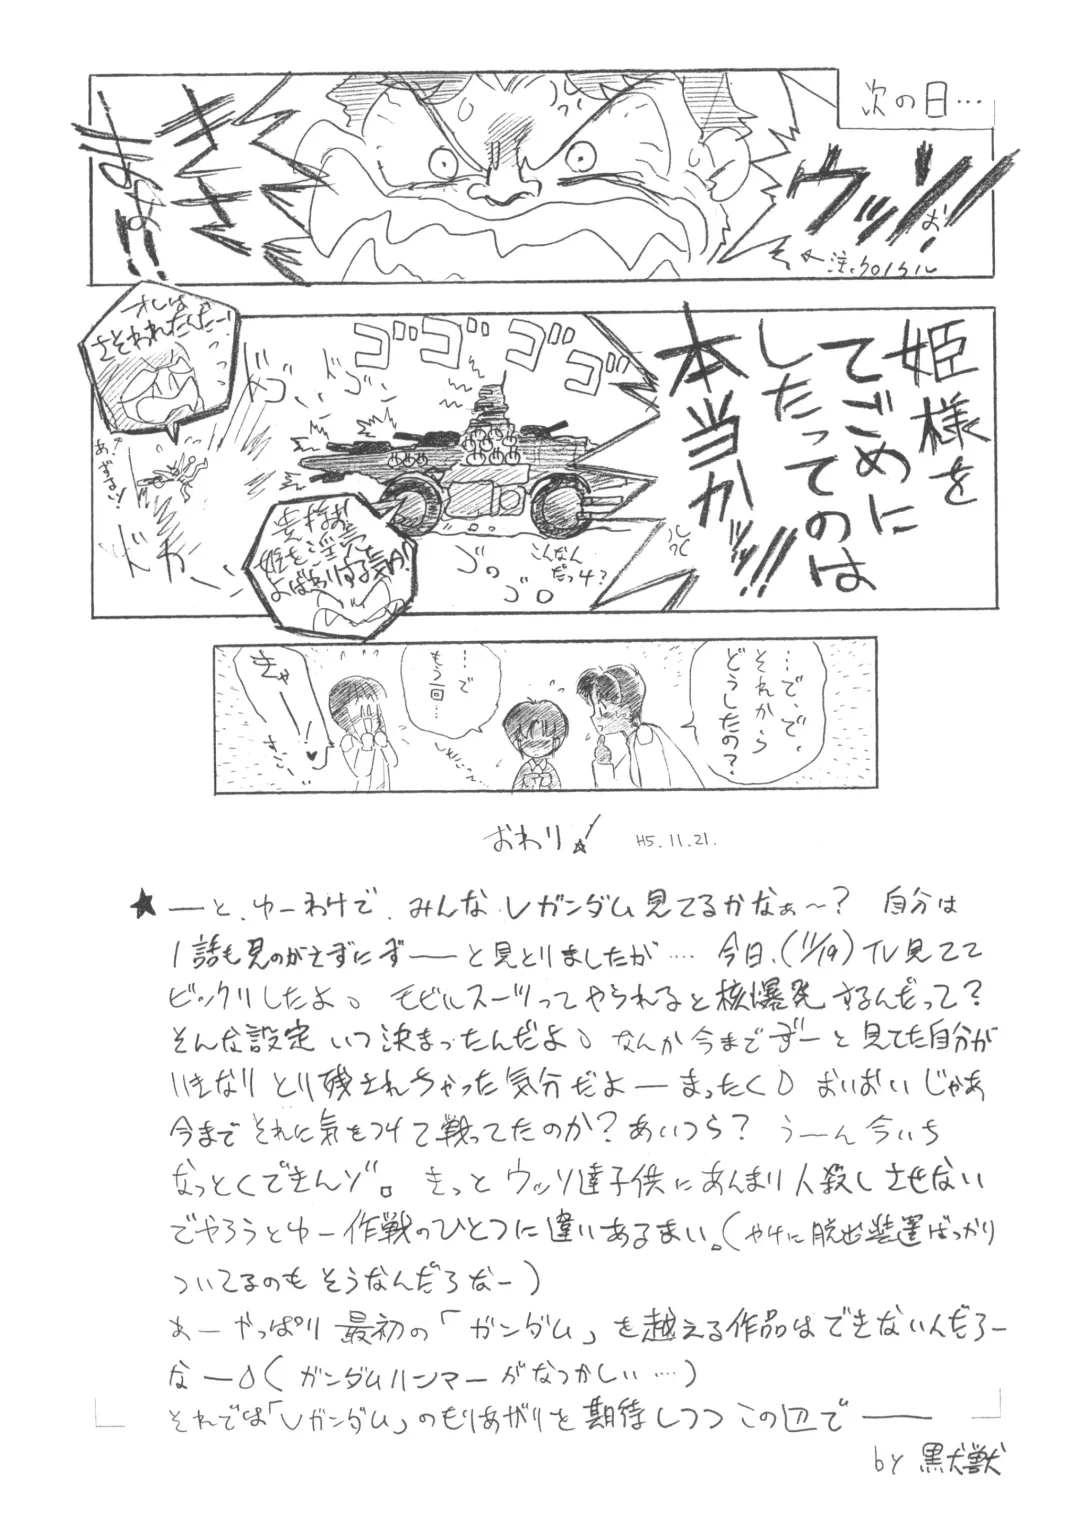 次の日…
ウッソ!
お!
注.クロノクル
きさ
まぁ!!
姫様を
てごめに
したってのは
本当か!!!
ゴゴゴゴ
オレは
さそわれたんだー!
ドゴ
ドゴ
ドカ
貴様ぁ
姫を淫売
よばわりする気か!
ゴゴゴ
こんなん
だっけ?
…で、で、
それから
どうしたの?
…で
もう一回…
きゃーー!♥
おわり! H5.11.21.
★ーと、ゆーわけで、みんなVガンダム見てるかなぁ〜? 自分は
1話も見のがさずにずーーと見とりましたが…. 今日、(11/19)TV見てて
ビックリしたよ。モビルスーツってやられると核爆発するんだって?
そんな設定いつ決まったんだよ。なんか今までずーと見てた自分が
いきなりとり残されちゃった気分だよーまったく。おいおいじゃあ
今までそれに気をつけて戦ってたのか?あいつら? うーん今いち
なっとくできんゾ。きっとウッソ達子供にあんまり人殺しさせない
でやろうとゆー作戦のひとつに違いあるまい。(やけに脱出装置ばっかり
ついてるのもそうなんだろなー)
ぁーやっぱり最初の「ガンダム」を越える作品はできないんだろー
なー。(ガンダムハンマーがなつかしい…)
それでは「Vガンダム」のもりあがりを期待しつつこの辺でーー
by 黒犬獣